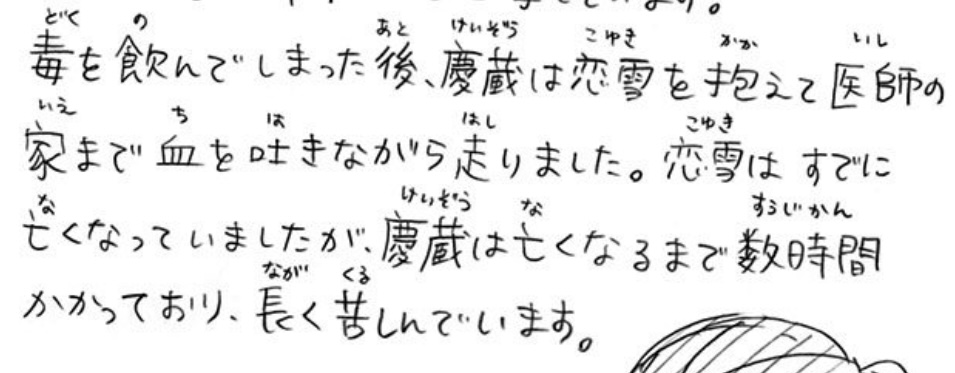 毒を飲んでしまった後、慶蔵は恋雪を抱えて医師の
家まで血を吐きながら走りました。恋雪はすでに
亡くなっていましたが、慶蔵は亡くなるまで数時間
かかっており、長く苦しんでいます。